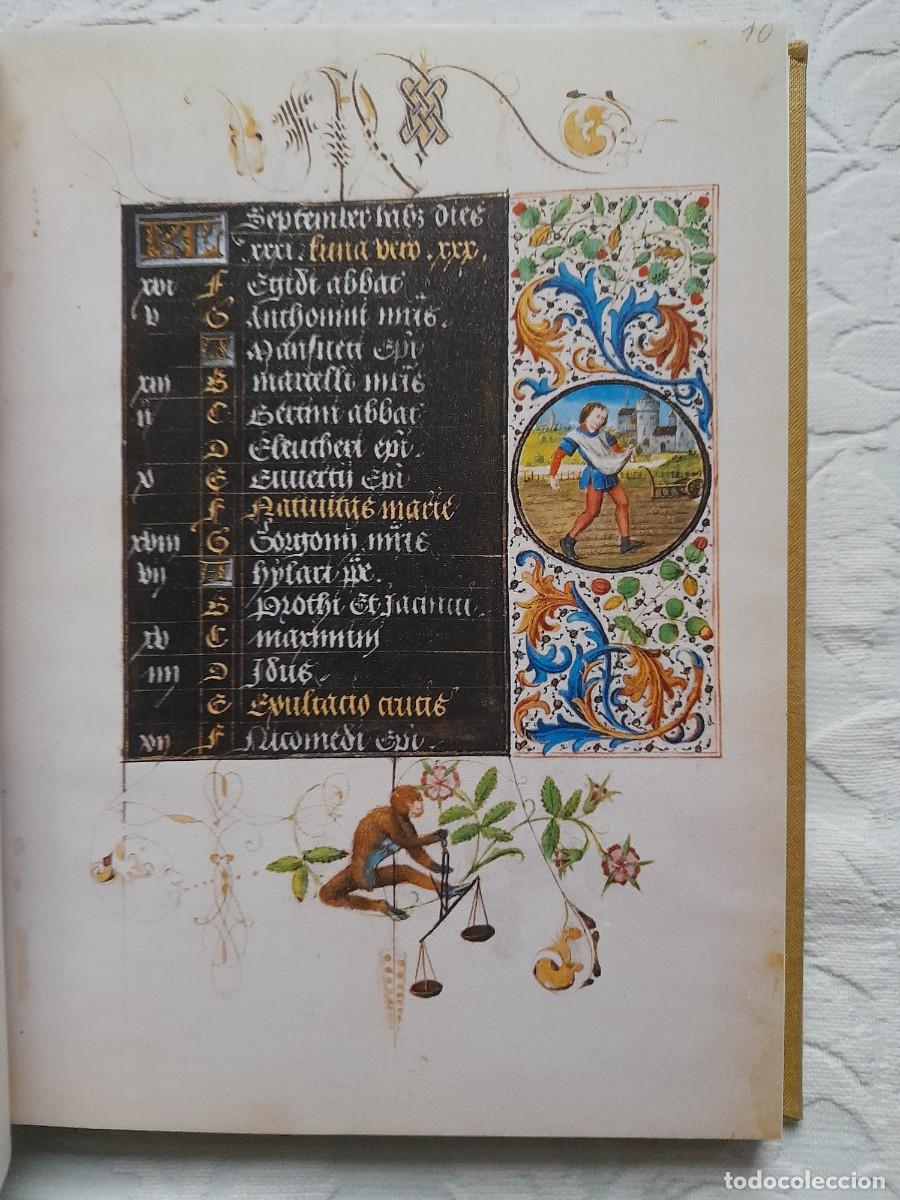 10
KL September habz dies
xxxi. luna vero .xxx.
xvi F Egidi abbat
v G Anthonini mris.
A Mansueti Epi
xiii B marcelli mris
ii C Bertini abbat
D Eleutheri epi.
x E Euuertij Epi
F Natiuitas marie
xviii G Gorgonij mris
vij A hylari
B Prothi Et Jacincti.
xv C maximini
iiii D Idus
E Exultacio crucis
xij F Nicomedi Epi.
todocoleccion